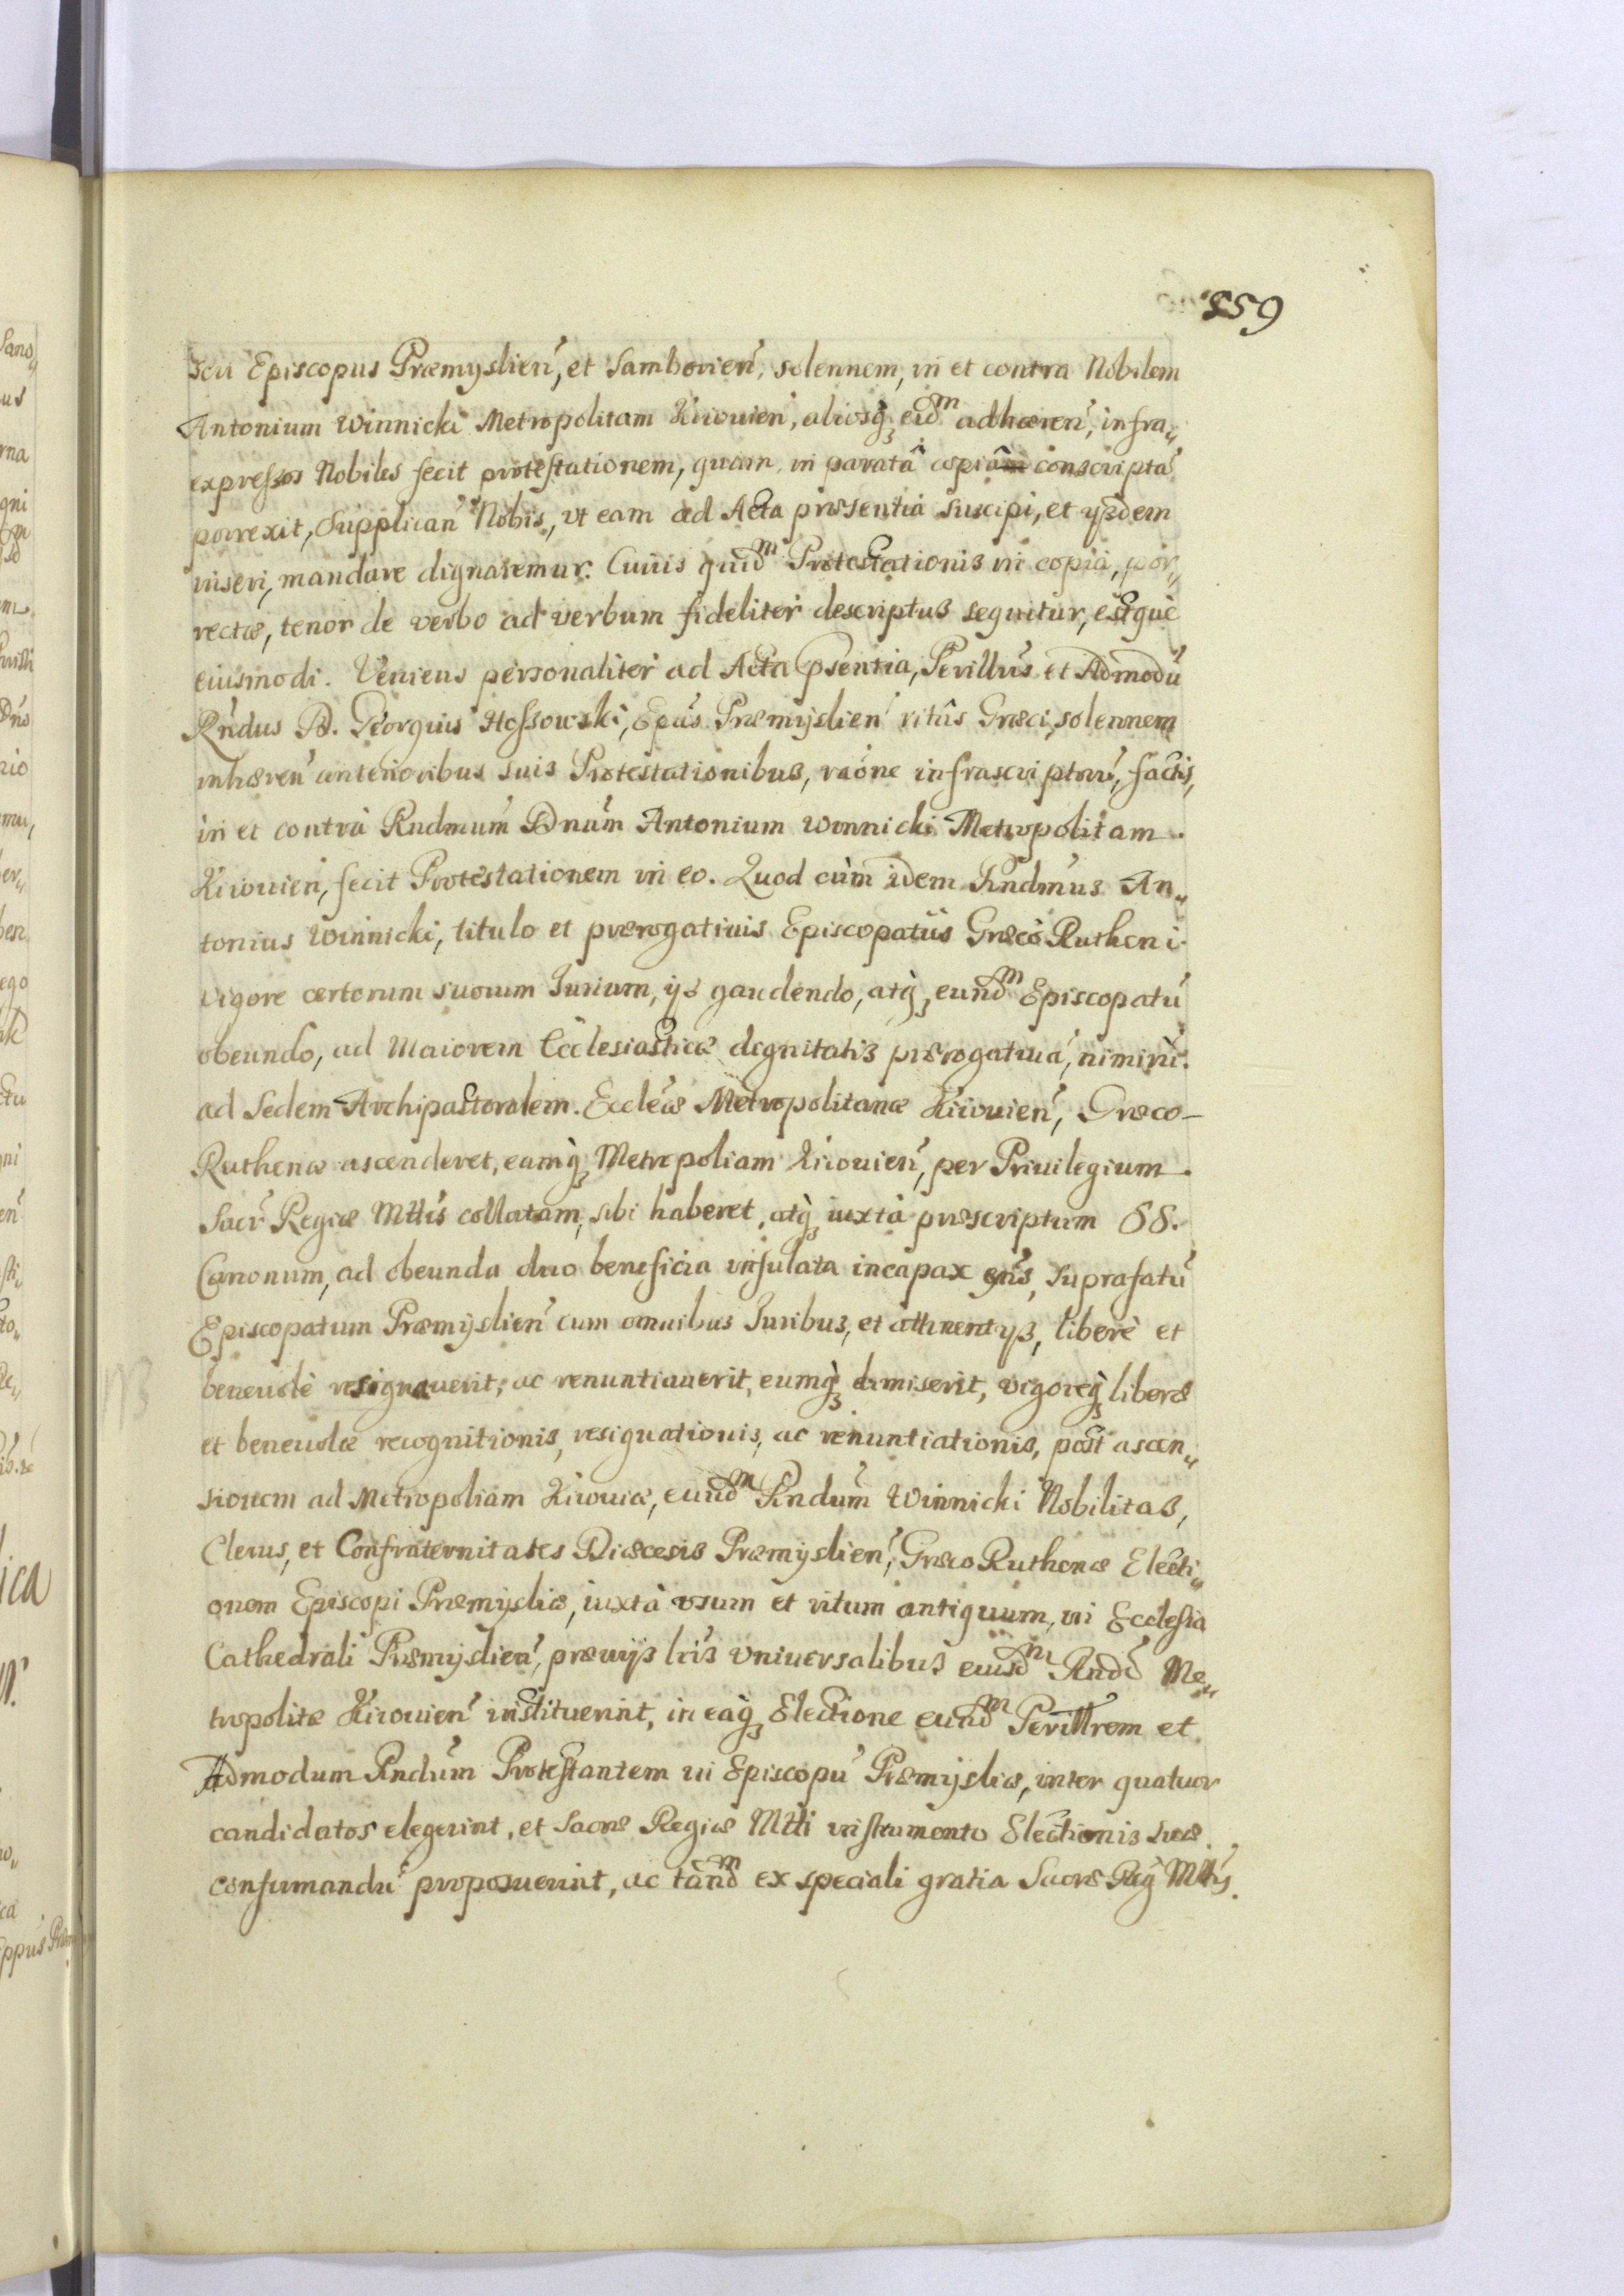 559
seu Episcopus Præmyslien̄, et Samborien̄, solennem, in et contra Nobilem
Antonium Winnicki Metropolitam Kiiouien̄, aliosq₃ eidᵐ adhæren̄, infra„
expressos Nobiles fecit protestationem, quam, in paratâ copiâ conscriptâ
porrexit, Supplican̄ Nobis, vt eam ad Acta præsentia suscipi, et ijsdem
inseri, mandare dignaremur. Cuius quidᵐ Protestationis in copia, por„
rectæ, tenor de verbo ad verbum fideliter descriptus sequitur, estque
eiusmodi. Veniens personaliter ad Acta p̄sentia, Perillus̄ et Admodū
Rn̄dus D. Georgius Hossowski, Epūs Præmyslien̄ ritûs Græci, solennem
inhæren̄ anterioribus suis Protestationibus, raōne infrascriptorū, factis,
in et contrà Rndmum̄ Dnum̄ Antonium Winnicki Metropolitam
Kiiouien̄, fecit Protestationem in eo. Quod cùm idem Rndmūs An„
tonius Winnicki, titulo et prærogatiuis Episcopatûs Græco Rutheni
vigore certorum suorum Iurium, ijs gaudendo, atq₃ eundᵐ Episcopatū
obeundo, ad Maiorem Ecclesiasticæ dignitatis prærogatiuā, nimirū
ad Sedem Archipastoralem Eccleīæ Metropolitanæ Kiiouien̄, Græco-
Ruthenæ ascenderet, eamq₃ Metropoliam Kiiouien̄, per Priuilegium
Sacr̄ Regiæ Mttis̄ collatam, sibi haberet, atq₃ iuxtà præscriptum SS.
Canonum, ad obeunda duo beneficia infulata incapax en̄s, suprafatū
Episcopatum Præmyslien̄ cum omnibus Iuribus, et attinentijs, liberè et
beneuolè resignauerit, ac renuntiauerit, eumq₃ dimiserit, vigoreq₃ liberæ
et beneuolæ recognitionis, resignationis, ac renuntiationis, post ascen„
sionem ad Metropoliam Kiiouiæ, eundᵐ Rndum̄ Winnicki Nobilitas,
Clerus, et Confraternitates Diæcesis Præmyslien̄, Græco Ruthenæ Electi„
onem Episcopi Præmysliæ, iuxtà vsum et ritum antiquum, in Ecclesia
Cathedrali Præmyslien̄, præuijs lrīs vniuersalibus eiusdᵐ Rndī Me„
tropolitæ Kiiouien̄ instituerint, in eaq₃ Electione eundᵐ Perillrem et
Admodum Rndum̄ Protestantem in Episcopū Præmysliæ, inter quatuor
candidatos elegerint, et Sacræ Regiæ Mtti instrumento Electionis suæ
confirmandū proposuerint, ac tandᵐ ex speciali gratia Sacræ Reg̃ Mttis̄